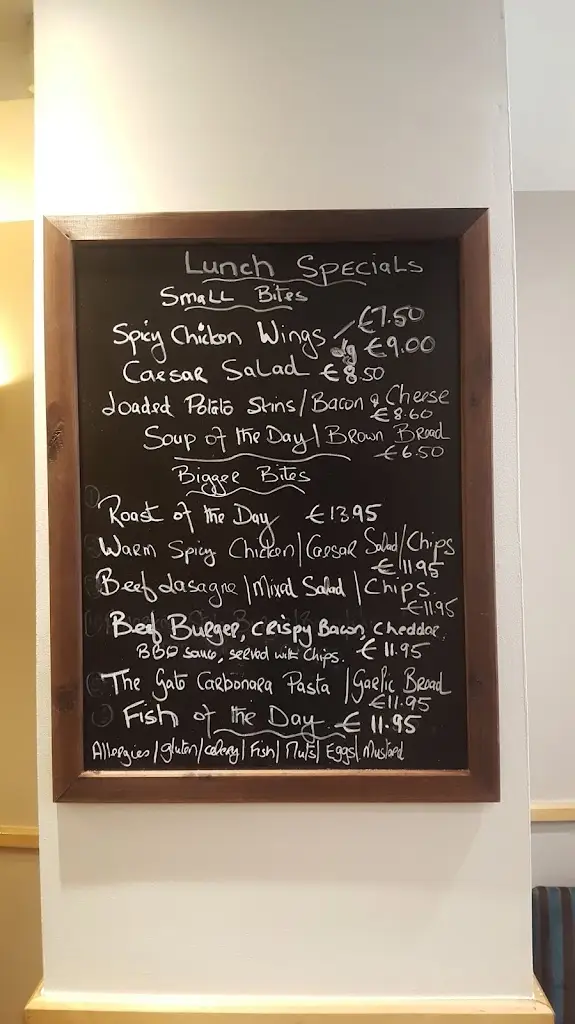 Lunch Specials
Small Bites
Spicy Chicken Wings €7.50
€9.00
Caesar Salad €8.50
Loaded Potato Skins/Bacon & Cheese
€8.60
Soup of the Day/Brown Bread
€6.50
Bigger Bites
Roast of the Day €13.95
Warm Spicy Chicken/Caesar Salad/Chips
€11.95
Beef Lasagne/Mixed Salad/Chips.
€11.95
Beef Burger, Crispy Bacon, Cheddar,
BBQ sauce, served with Chips. €11.95
The Gato Carbonara Pasta/Garlic Bread
€11.95
Fish of the Day €11.95
Allergies/gluten/celery/Fish/Nuts/Eggs/Mustard